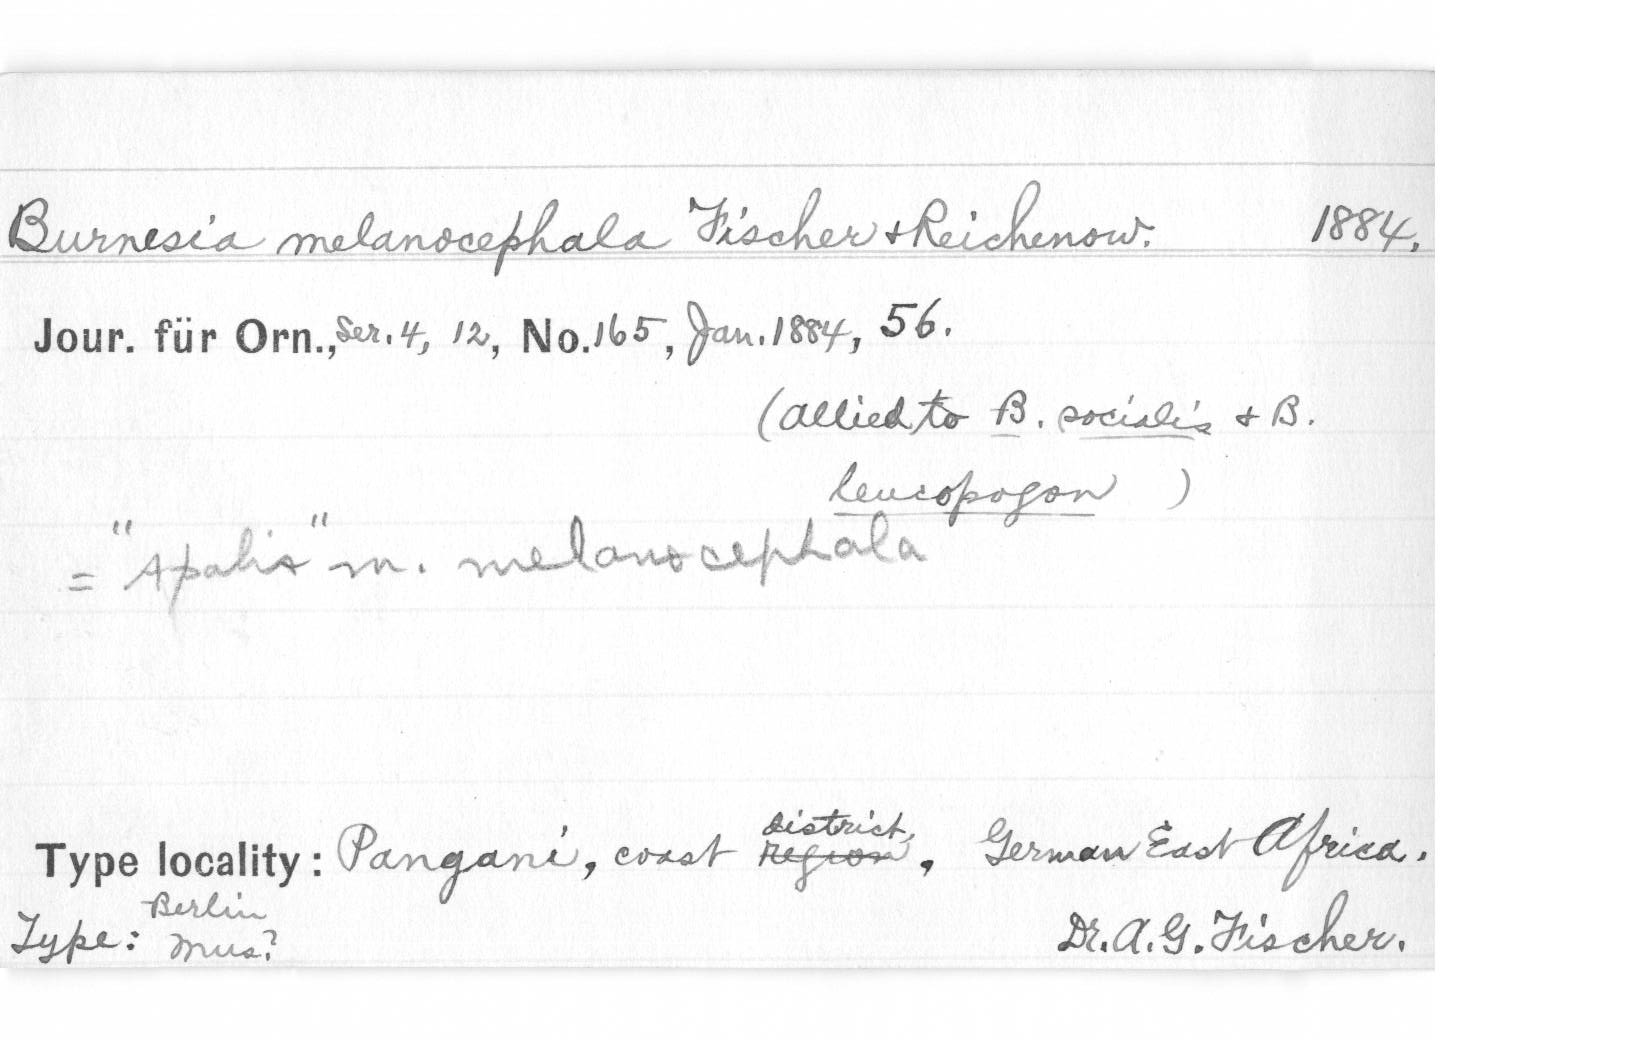 Burnesia melanocephala Fischer & Reichenow. 1884.
Jour. für Orn., Ser. 4, 12, No. 165, Jan. 1884, 56.
(allied to B. socialis & B.
leucopogon )
= "Apalis" m. melanocephala
district,
Type locality: Pangani, coast region, German East Africa.
Type: Berlin Mus? Dr. A. G. Fischer.